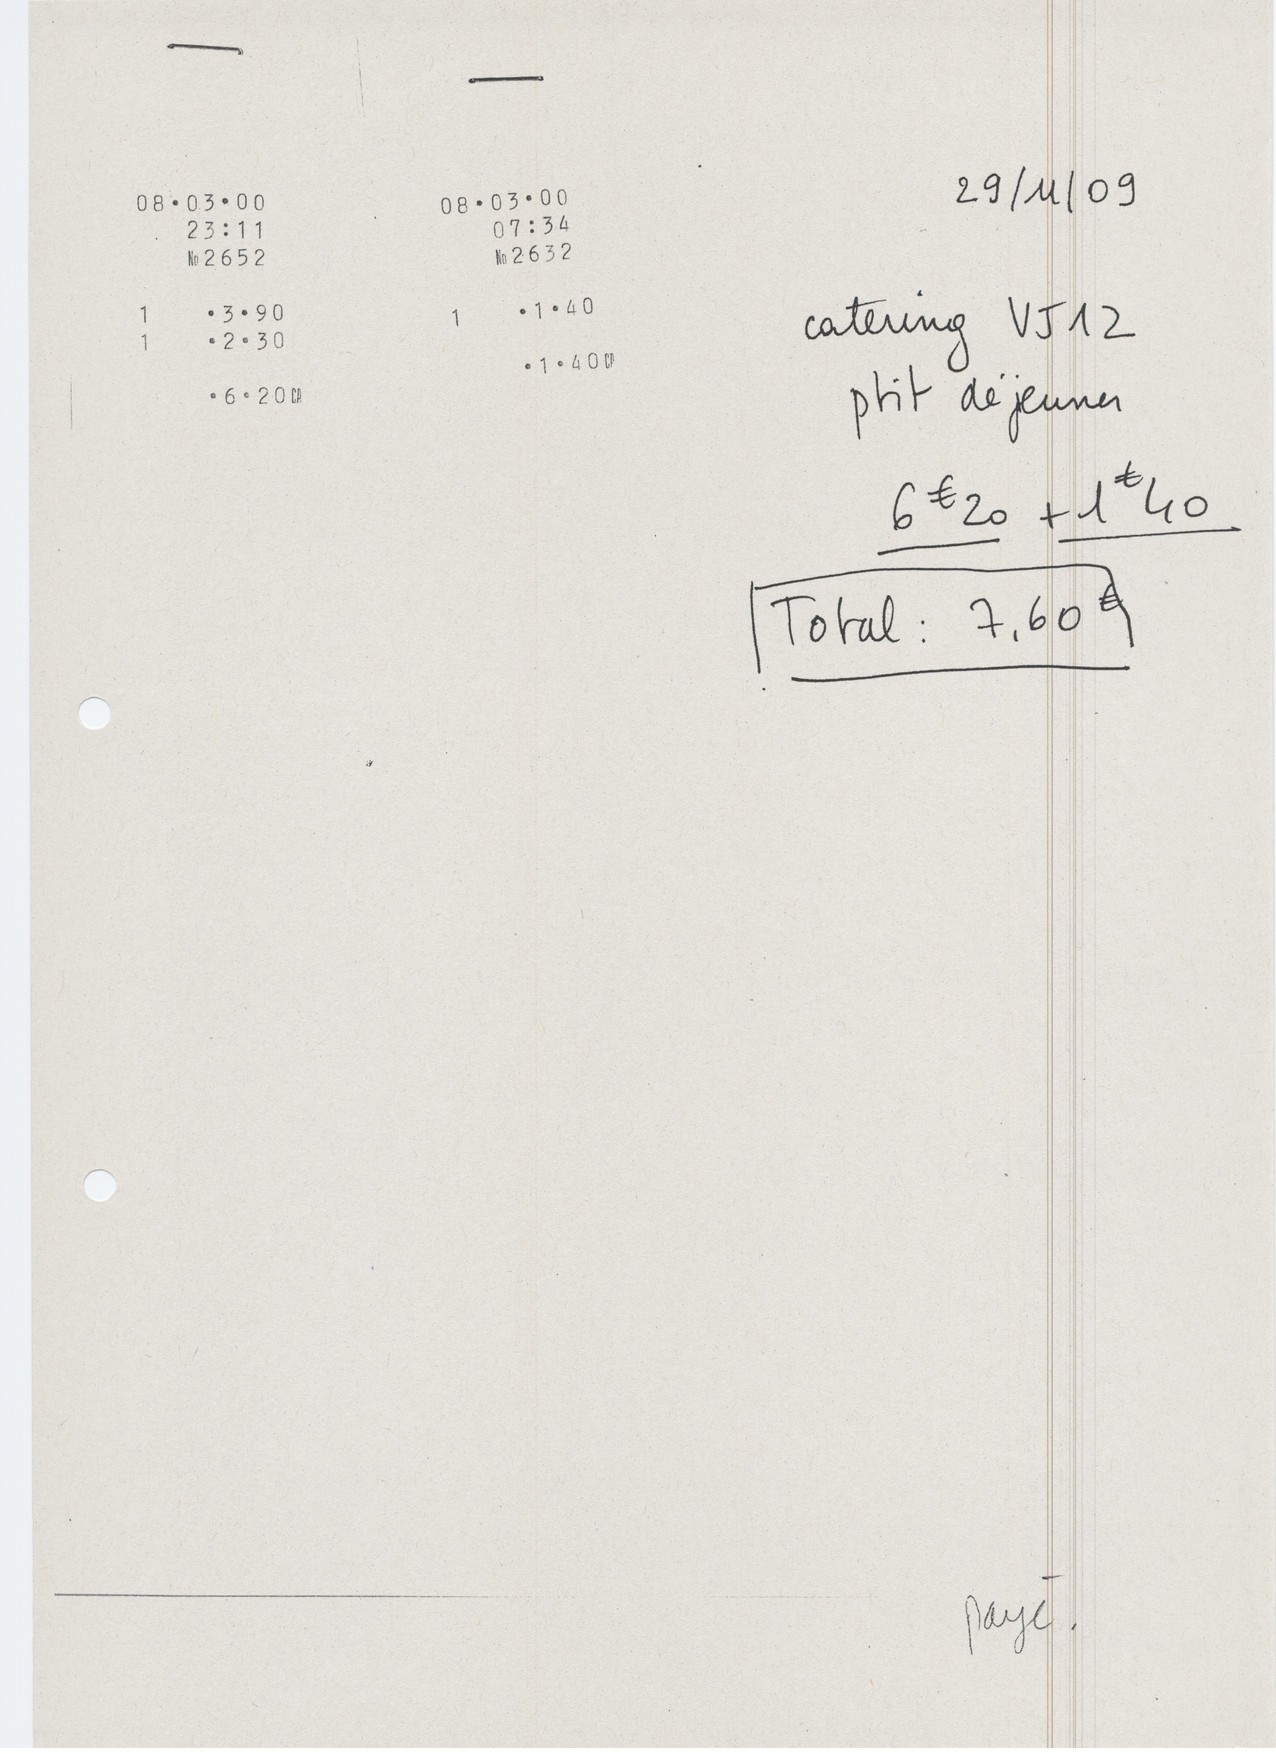 08•03•00
23:11
№2652
1 •3•90
1 •2•30
•6•20CA
08•03•00
07:34
№2632
1 •1•40
•1•40CA
29/11/09
catering VJ12
ptit déjeuner
6€20 + 1€40
Total : 7,60€
payé.